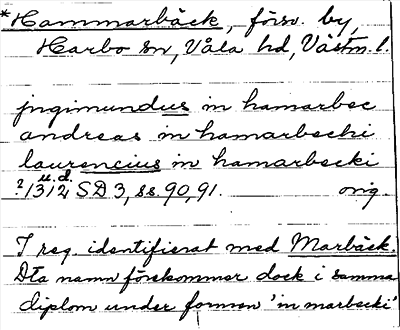 *Hammarbäck, försv. by,
Harbo sn, Våla hd, Västm. l.
jngimundus in hamarbec
andreas in hamarbecki
laurencius in hamarbecki
u. d.
? 1312 SD 3, ss. 90, 91. orig.
I reg. identifierat med Marbäck.
Dta namn förekommer dock i samma
diplom under formen 'in marbecki'